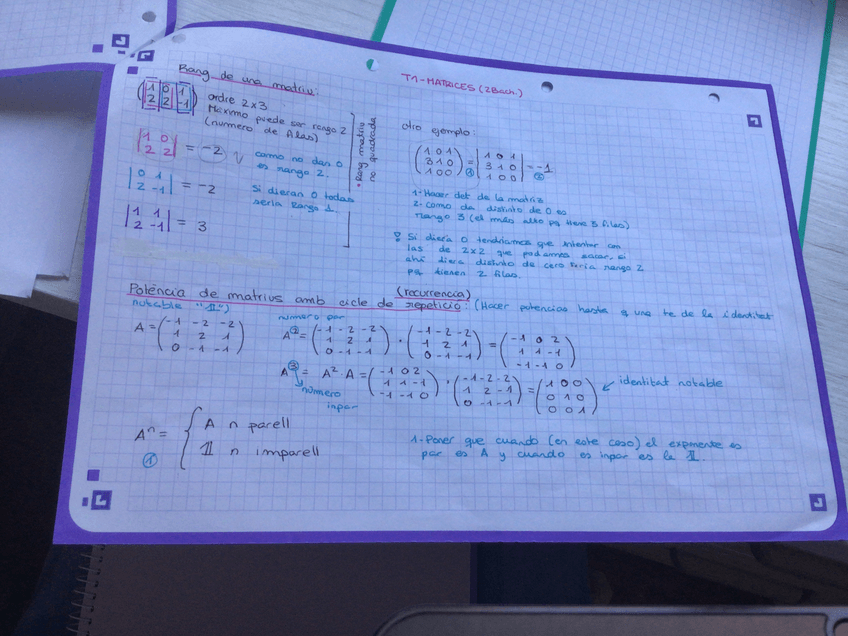 T1-MATRICES (2Bach.)
Rang de una matriu:
(1 0 1
2 2 -1)
ordre 2x3
Máximo puede ser rango 2
(numero de filas)
|1 0
2 2| = -2 √
como no dan 0
es rango 2.
|0 1
2 -1| = -2
Si dieran 0 todas
seria Rango 1.
|1 1
2 -1| = 3
* Rang matriu
no quadrada
otro ejemplo:
(1 0 1
3 1 0
1 0 0) = ① |1 0 1
3 1 0
1 0 0| = -1 ②
1-Hacer det de la matriz
2-como da distinto de 0 es
rango 3 (el más alto pq tiene 3 filas)
Si diera 0 tendriamos que intentar con
las de 2x2 que podamos sacar, si
ahi diera distinto de cero seria rango 2
pq tienen 2 filas.
Potència de matrius amb cicle de repetició: (Hacer potencias hasta q una te de la identitat
(recurrencia)
notable "𝟙")
A = (-1 -2 -2
1 2 1
0 -1 -1)
número par
A² = (-1 -2 -2
1 2 1
0 -1 -1) · (-1 -2 -2
1 2 1
0 -1 -1) = (-1 0 2
1 1 -1
-1 -1 0)
A³ = A²·A = (-1 0 2
1 1 -1
-1 -1 0) · (-1 -2 -2
1 2 -1
0 -1 -1) = (1 0 0
0 1 0
0 0 1)
identitat notable
número
inpar
Aⁿ = { A n parell
𝟙 n imparell
①
1-Poner que cuando (en este caso) el exponente es
par es A y cuando es inpar es la 𝟙.